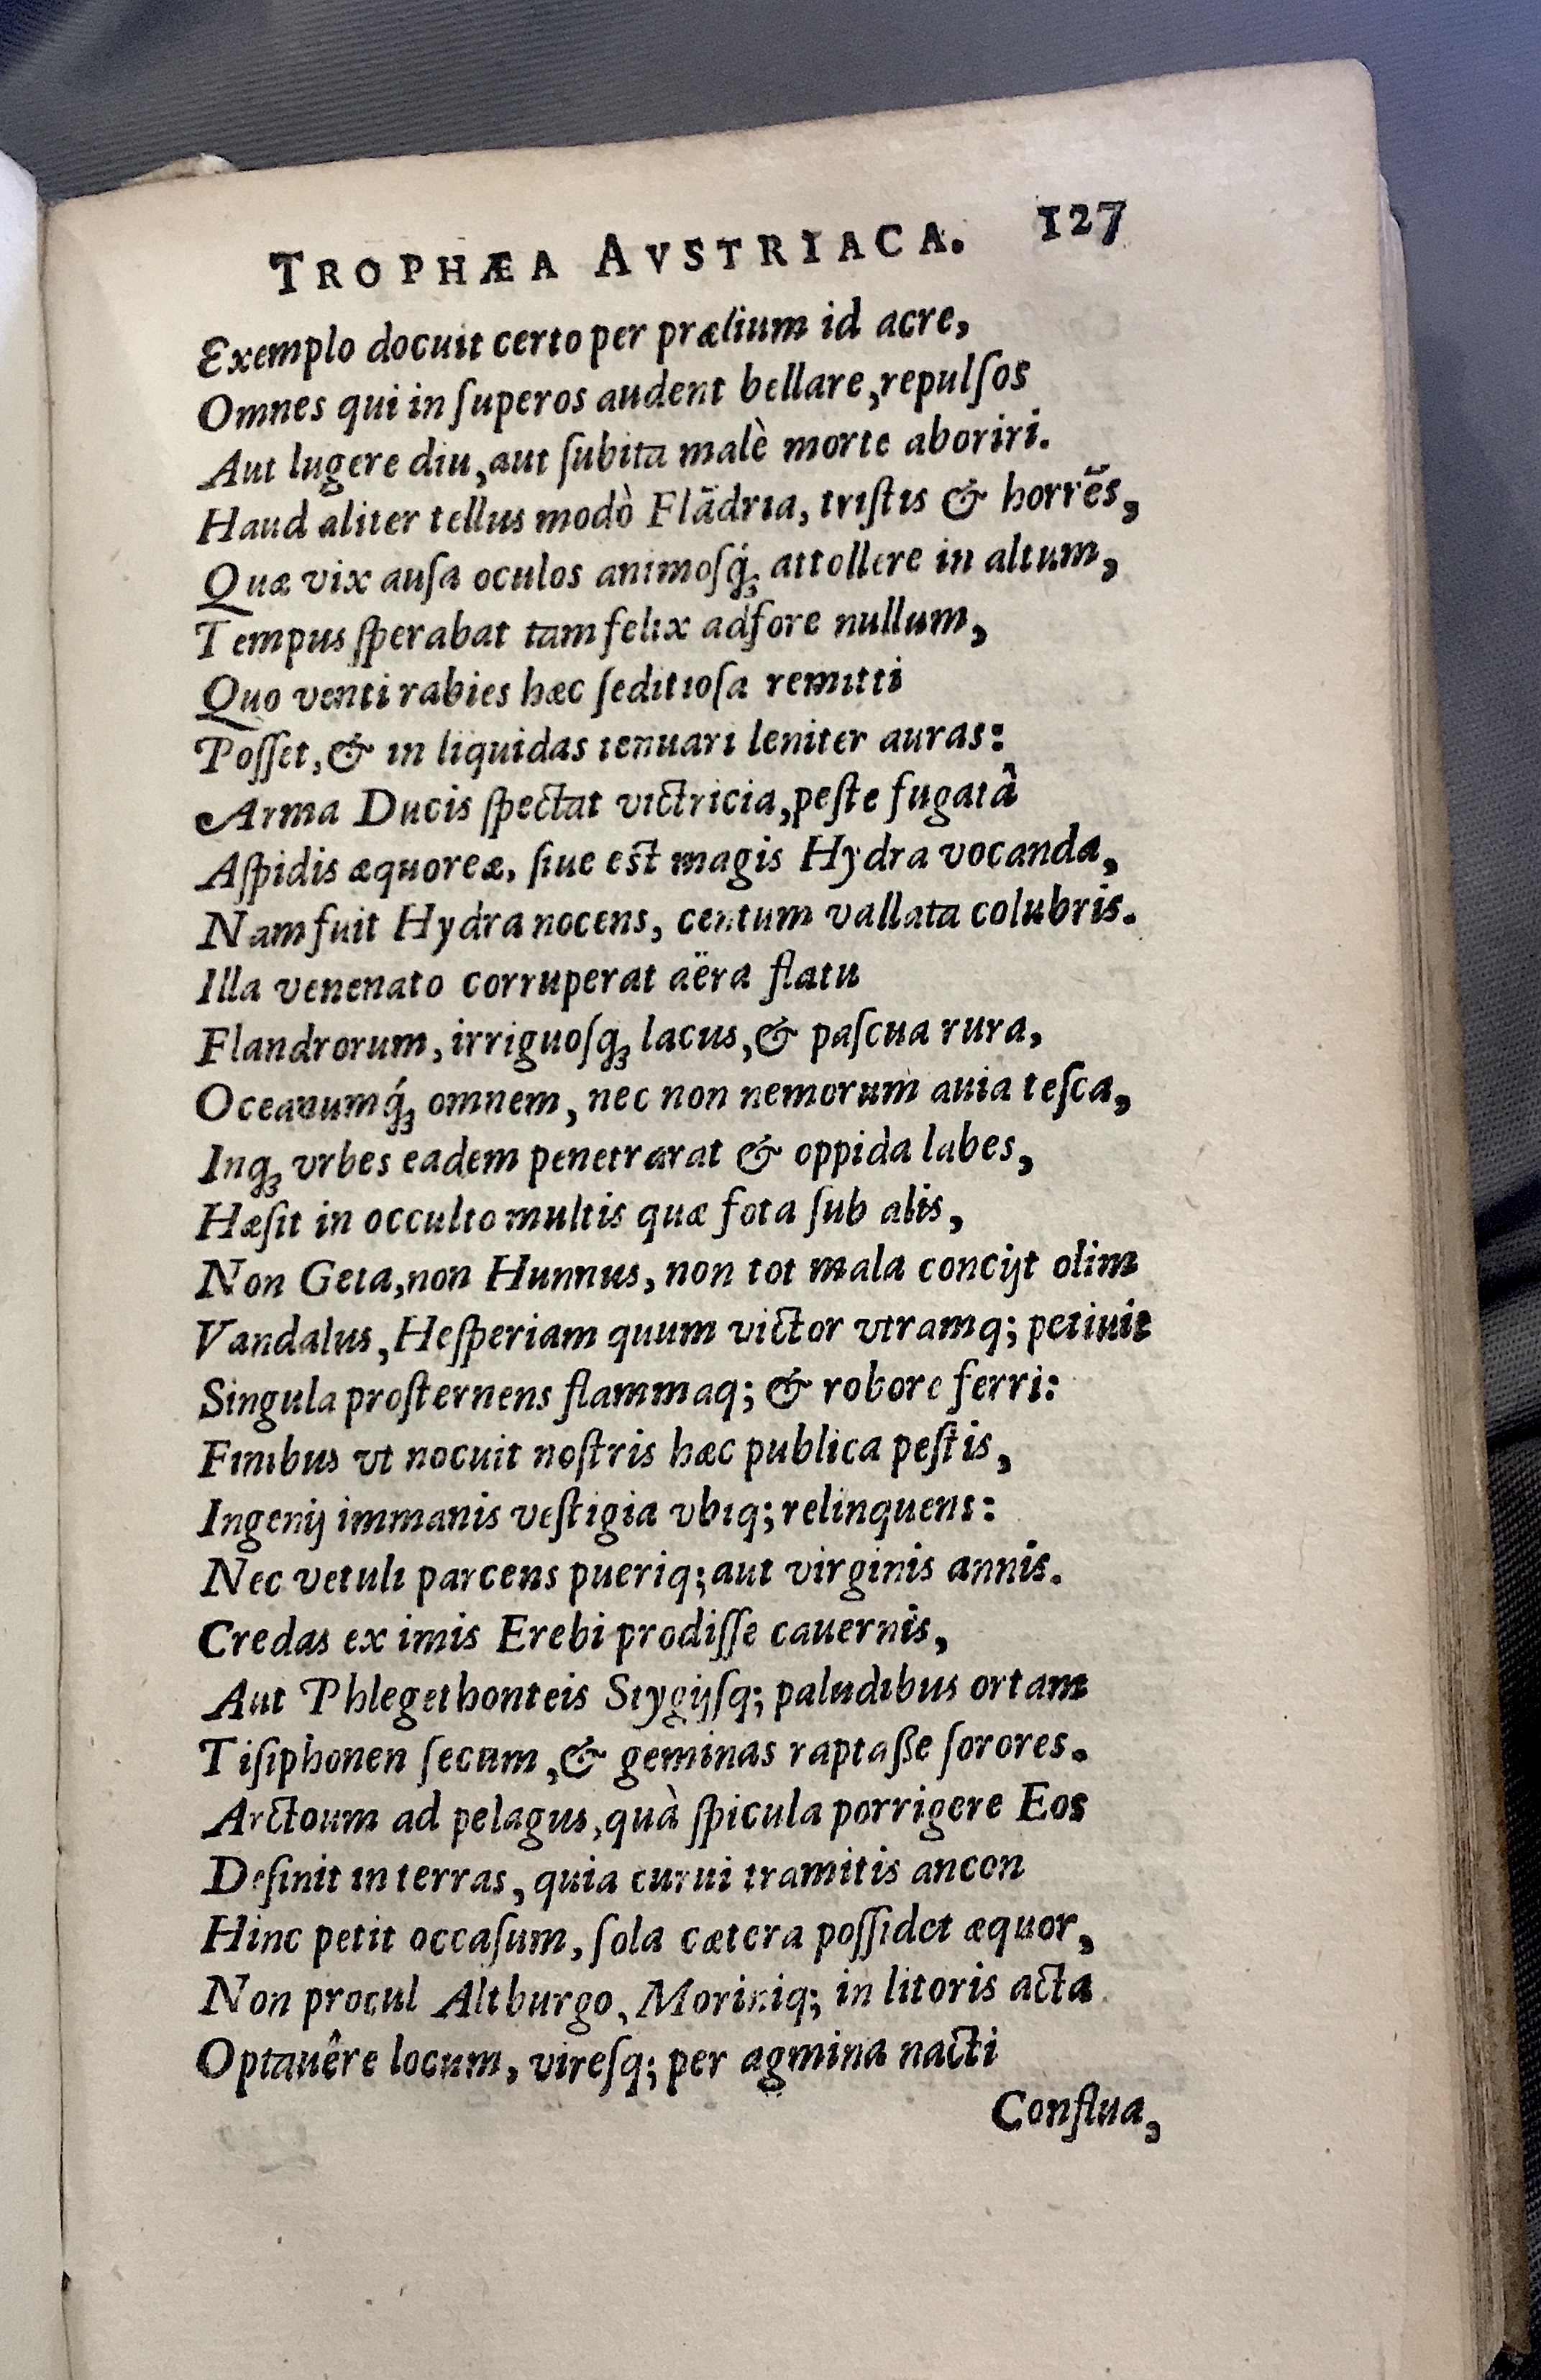 TROPHÆA AVSTRIACA. 127
Exemplo docuit certo per prælium id acre,
Omnes qui in ſuperos audent bellare, repulſos
Aut lugere diu, aut ſubita malè morte aboriri.
Haud aliter tellus modò Flādria, triſtis & horrēs,
Quæ vix auſa oculos animoſq́ꝫ attollere in altum,
Tempus ſperabat tam felix adfore nullum,
Quo venti rabies hæc ſeditioſa remitti
Poſſet, & in liquidas tenuari leniter auras:
Arma Ducis ſpectat victricia, peſte fugatâ
Aſpidis æquoreæ, ſiue eſt magis Hydra vocanda,
Nam fuit Hydra nocens, centum vallata colubris.
Illa venenato corruperat aëra flatu
Flandrorum, irriguoſqꝫ lacus, & paſcua rura,
Oceanumq́ꝫ omnem, nec non nemorum auia teſca,
Inqꝫ vrbes eadem penetrarat & oppida labes,
Hæſit in occulto multis quæ fota ſub alis,
Non Geta, non Hunnus, non tot mala concijt olim
Vandalus, Heſperiam quum victor vtramq; petiuit
Singula proſternens flammaq; & robore ferri:
Finibus vt nocuit noſtris hæc publica peſtis,
Ingenij immanis veſtigia vbiq; relinquens:
Nec vetuli parcens pueriq; aut virginis annis.
Credas ex imis Erebi prodiſſe cauernis,
Aut Phlegethonteis Stygijſq; paludibus ortam
Tiſiphonen ſecum, & geminas raptaße ſorores.
Arctoum ad pelagus, quà ſpicula porrigere Eos
Deſinit in terras, quia curui tramitis ancon
Hinc petit occaſum, ſola cætera poſſidet æquor,
Non procul Altburgo, Moriniq; in litoris acta
Optauêre locum, vireſq; per agmina nacti
Conflua,